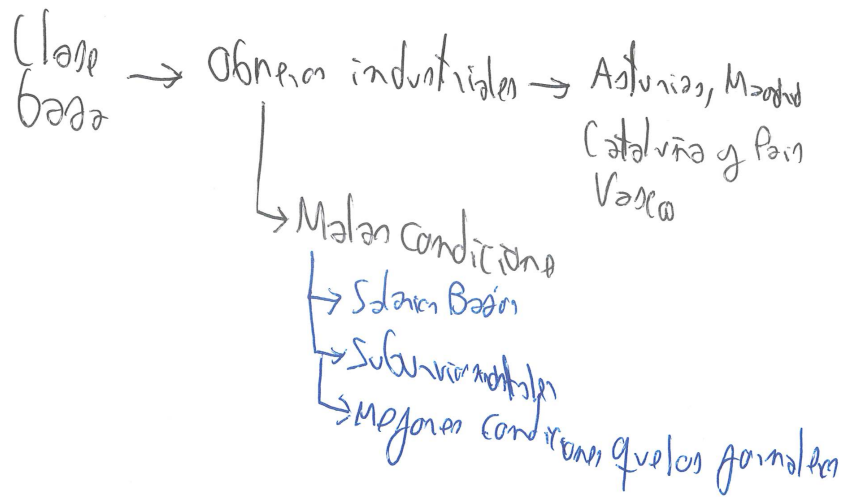 Clase
baja → Obreros industriales → Asturias, Madrid
Cataluña y País
Vasco
Malas Condiciones
→ Salarios Bajos
→ Suburvios
→ Mejores condiciones que los jornaleros